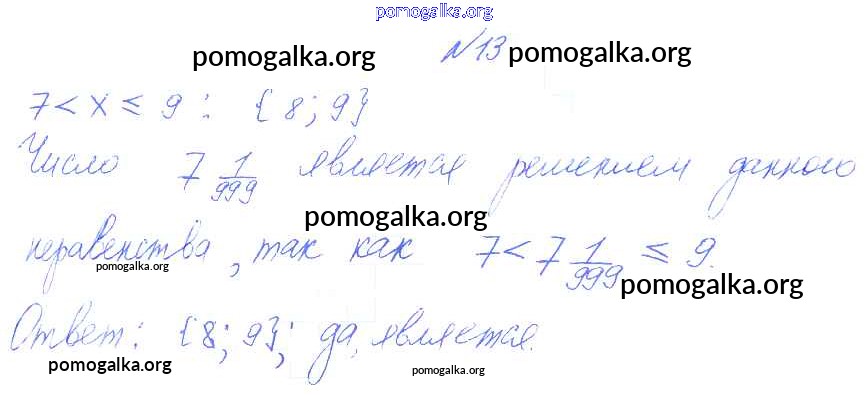 pomogalka.org
pomogalka.org №13 pomogalka.org
7 < x ≤ 9 : {8; 9}
Число 7 1/999 является решением данного
pomogalka.org
неравенства, так как 7 < 7 1/999 ≤ 9.
pomogalka.org pomogalka.org
Ответ: {8; 9}; да, является.
pomogalka.org pomogalka.org